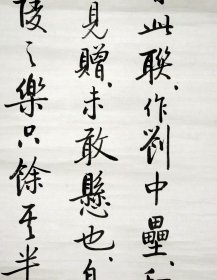 此聯作劉中壘
見贈未敢懸也
陵之樂只餘其半